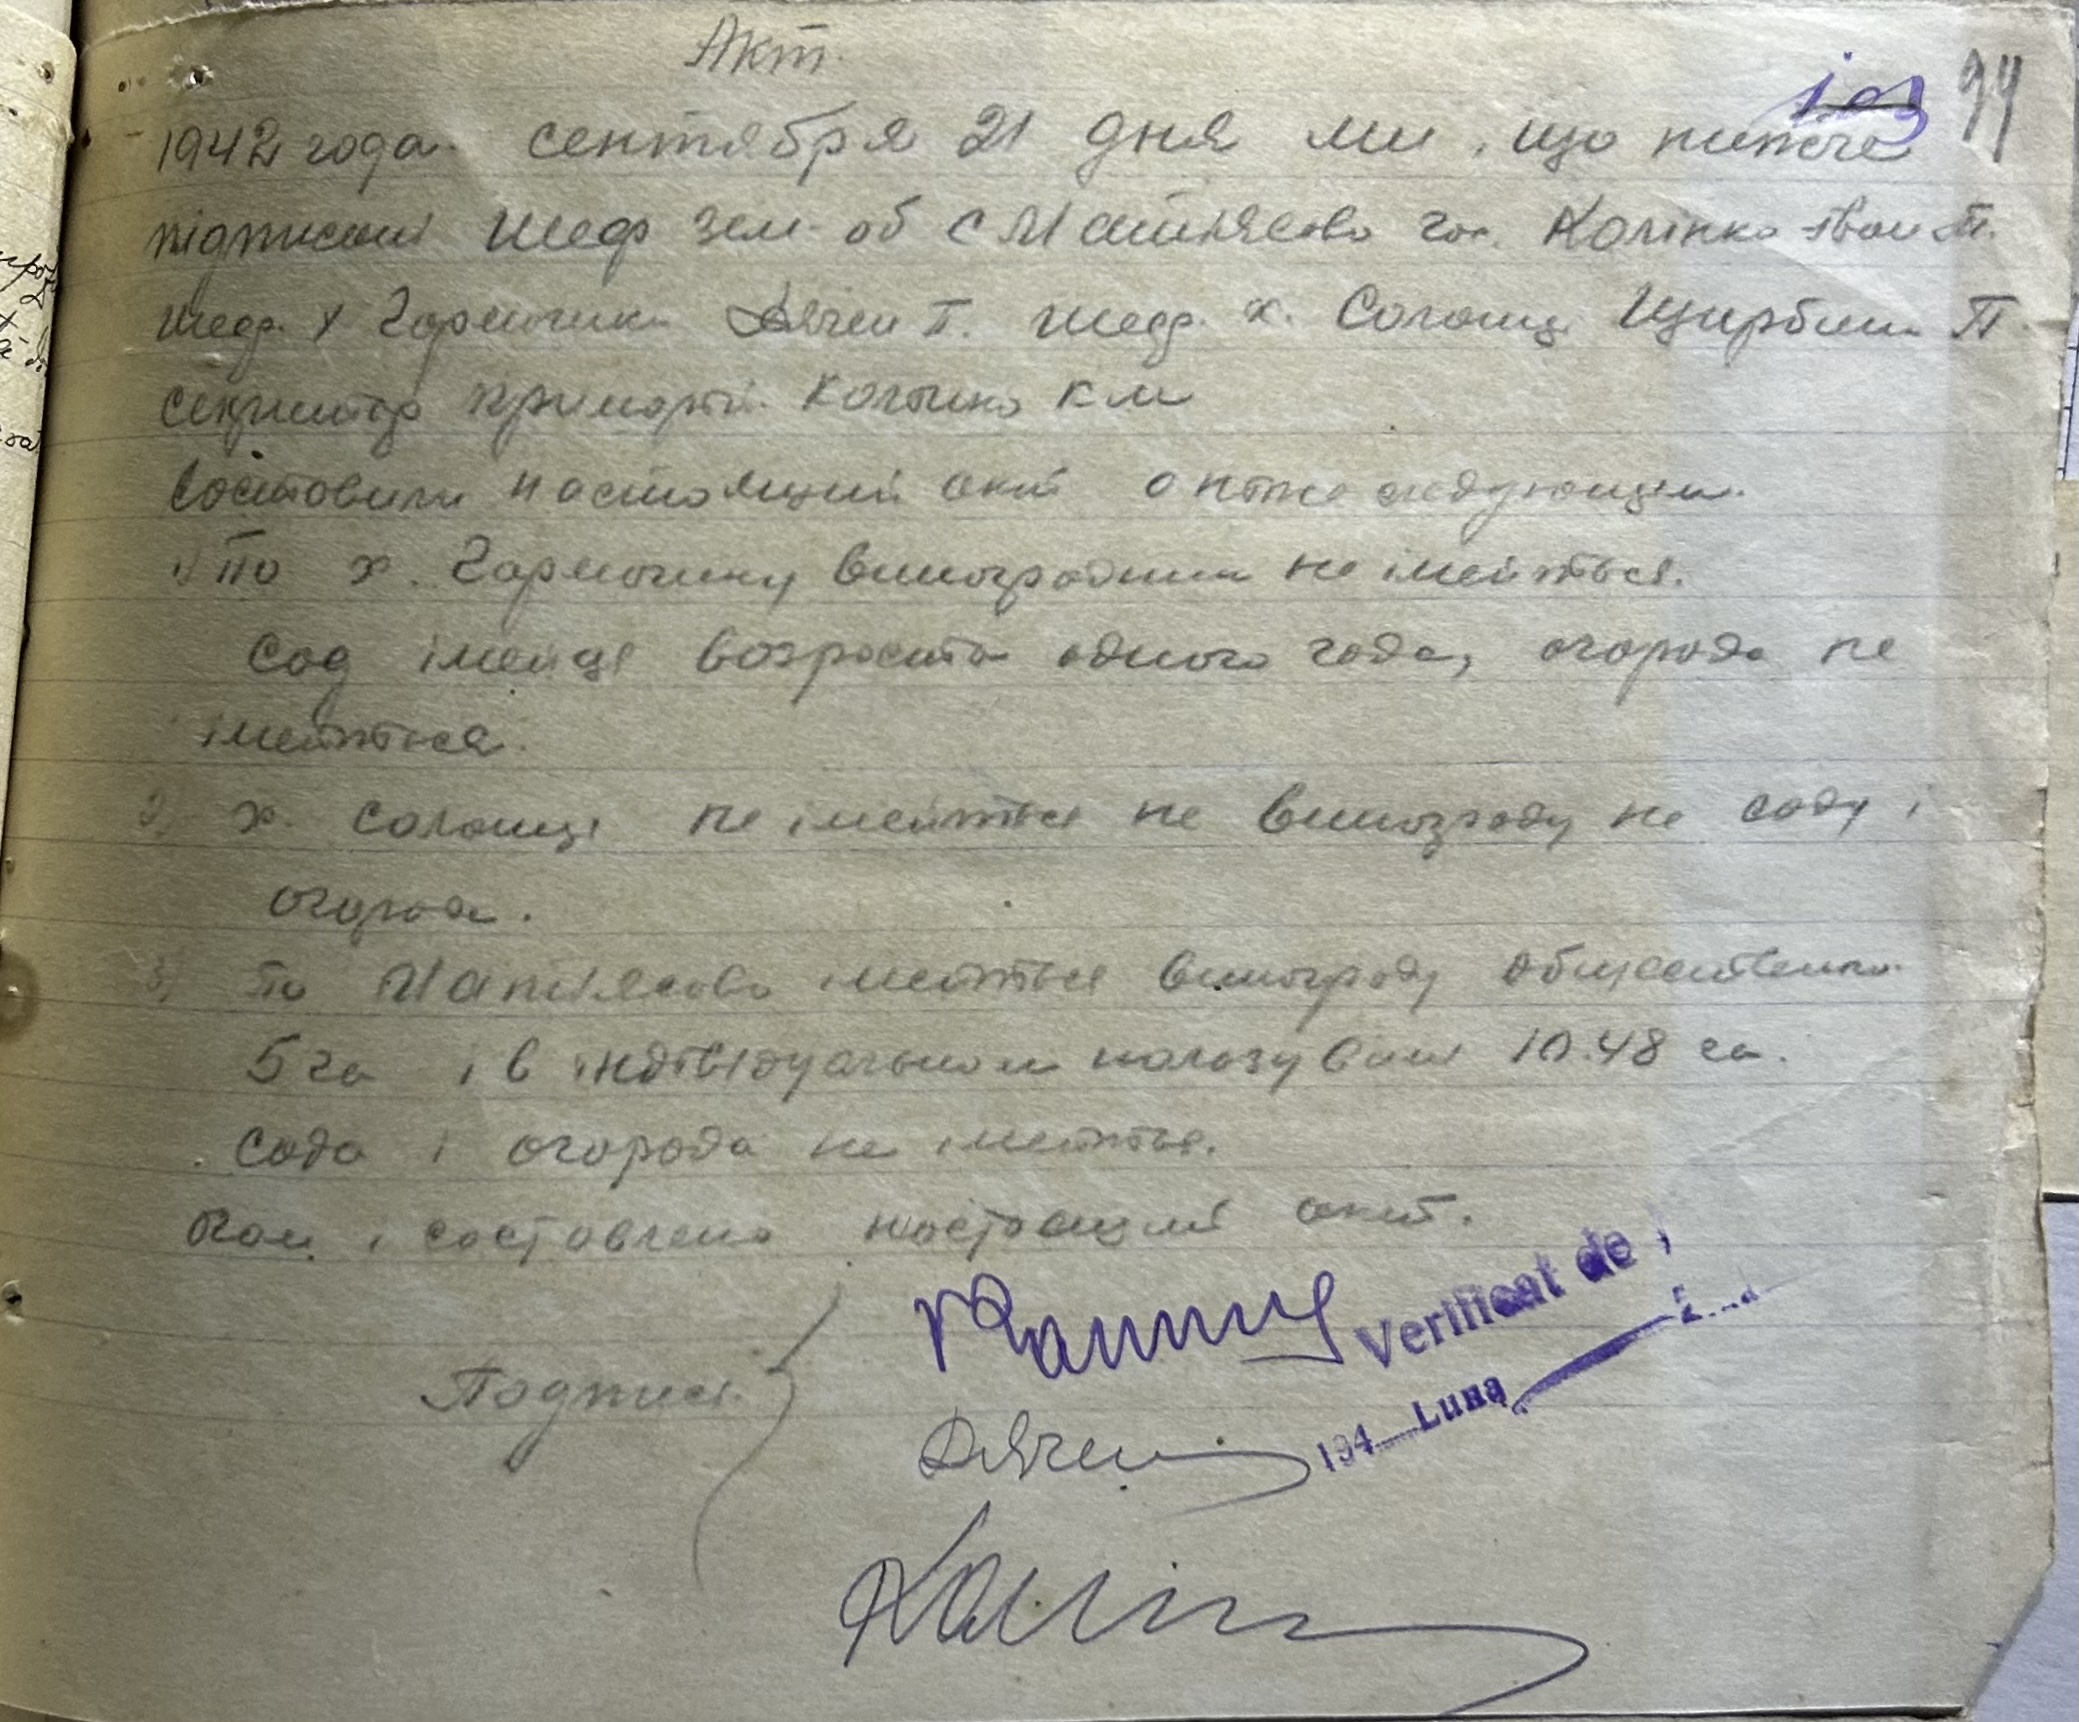 Акт.
103 94
1942 года сентября 21 дня ми, що нижче
підписані Шеф зем. об с Матіясово Калінко Іван П.
Шеф. х Гармошки Дячен П. Шеф. х. Солонці Щирбина П.
секритар примарії К М
состовили настоящий акт о нижеследующем.
1) По х. Гармошику виноградники не імеїться.
Сад імеїця возроста одного года, огорода не
імеїться.
2) х. Солонці не імеїться не винограду не саду і
огорода.
3) По Матіясово імеїться винограду обшественно
5 га і в індівідуальном пользувані 10.48 га.
Сада і огорода не імеїться.
о чом і составлено настоящий акт.
Подписи
Verificat de
194 Luna
Дячен
Калін